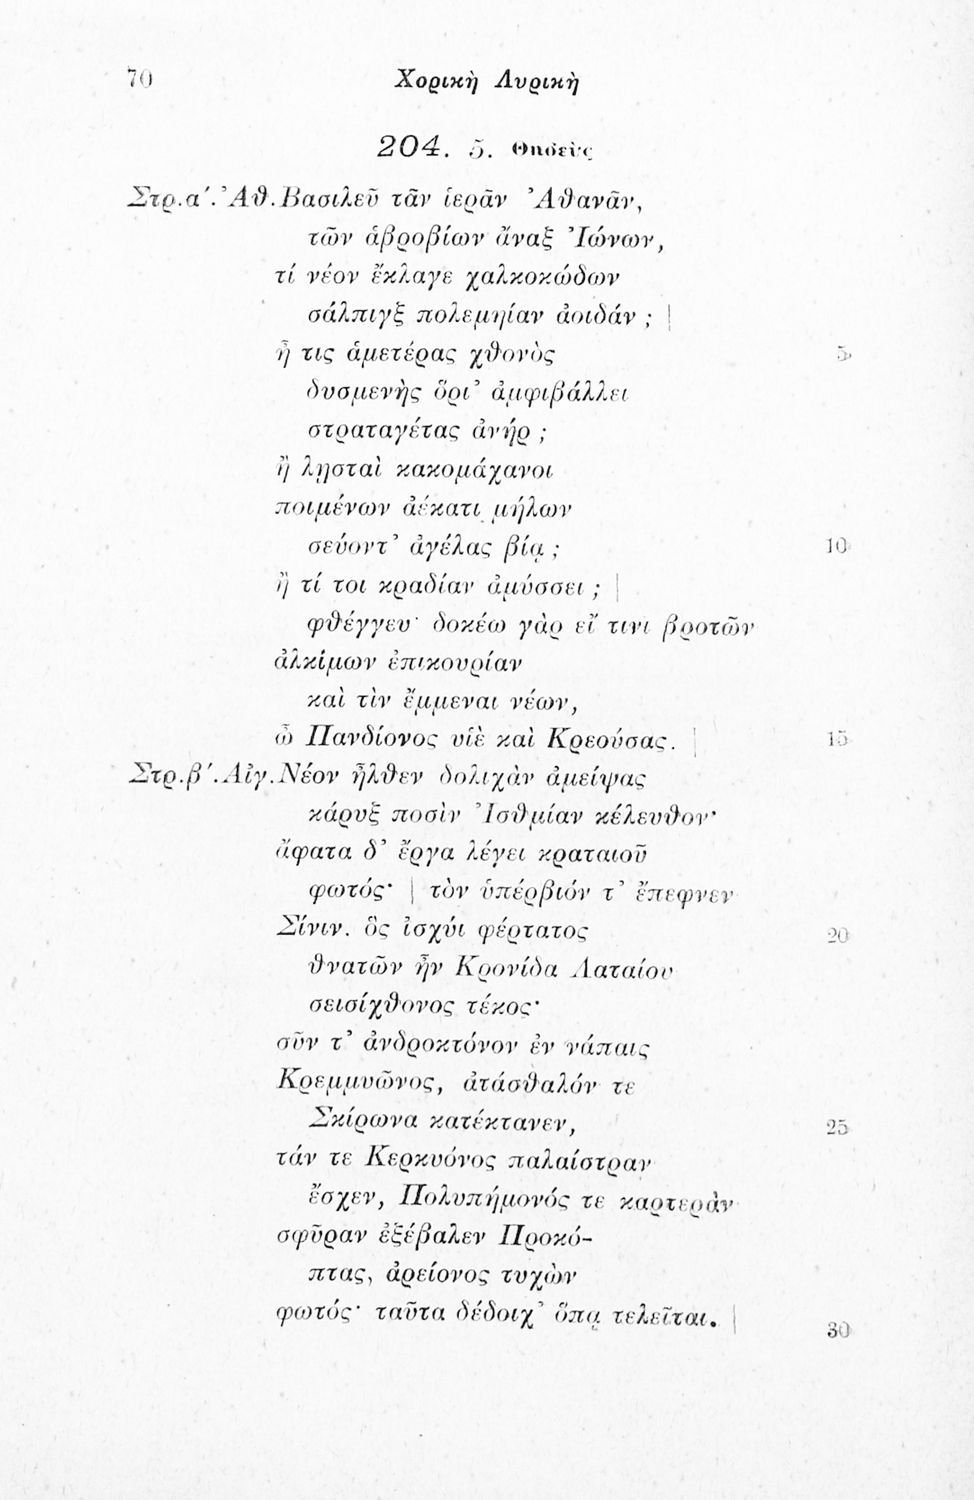 70
Χορικὴ Λυρικὴ
204. 5. Θησεὺς
Στρ.α΄.Ἀθ.Βασιλεῦ τᾶν ἱερᾶν Ἀθανᾶν,
τῶν ἁβροβίων ἄναξ Ἰώνων,
τί νέον ἔκλαγε χαλκοκώδων
σάλπιγξ πολεμηίαν ἀοιδάν ; |
ἦ τις ἁμετέρας χθονὸς 5
δυσμενὴς ὅρι’ ἀμφιβάλλει
στραταγέτας ἀνήρ ;
ἢ λῃσταὶ κακομάχανοι
ποιμένων ἀέκατι μήλων
σεύοντ’ ἀγέλας βίᾳ ; 10
ἢ τί τοι κραδίαν ἀμύσσει ; |
φθέγγευ· δοκέω γὰρ εἴ τινι βροτῶν
ἀλκίμων ἐπικουρίαν
καὶ τὶν ἔμμεναι νέων,
ὦ Πανδίονος υἱὲ καὶ Κρεούσας. | 15
Στρ.β΄.Αἰγ.Νέον ἦλθεν δολιχὰν ἀμείψας
κάρυξ ποσὶν Ἰσθμίαν κέλευθον·
ἄφατα δ’ ἔργα λέγει κραταιοῦ
φωτός· | τὸν ὑπέρβιόν τ’ ἔπεφνεν
Σίνιν. ὃς ἰσχύι φέρτατος 20
θνατῶν ἦν Κρονίδα Λαταίου
σεισίχθονος τέκος·
σῦν τ’ ἀνδροκτόνον ἐν νάπαις
Κρεμμυῶνος, ἀτάσθαλόν τε
Σκίρωνα κατέκτανεν, 25
τάν τε Κερκυόνος παλαίστραν
ἔσχεν, Πολυπήμονός τε καρτερὰν
σφῦραν ἐξέβαλεν Προκό-
πτας, ἀρείονος τυχὼν
φωτός· ταῦτα δέδοιχ’ ὅπᾳ τελεῖται. | 30